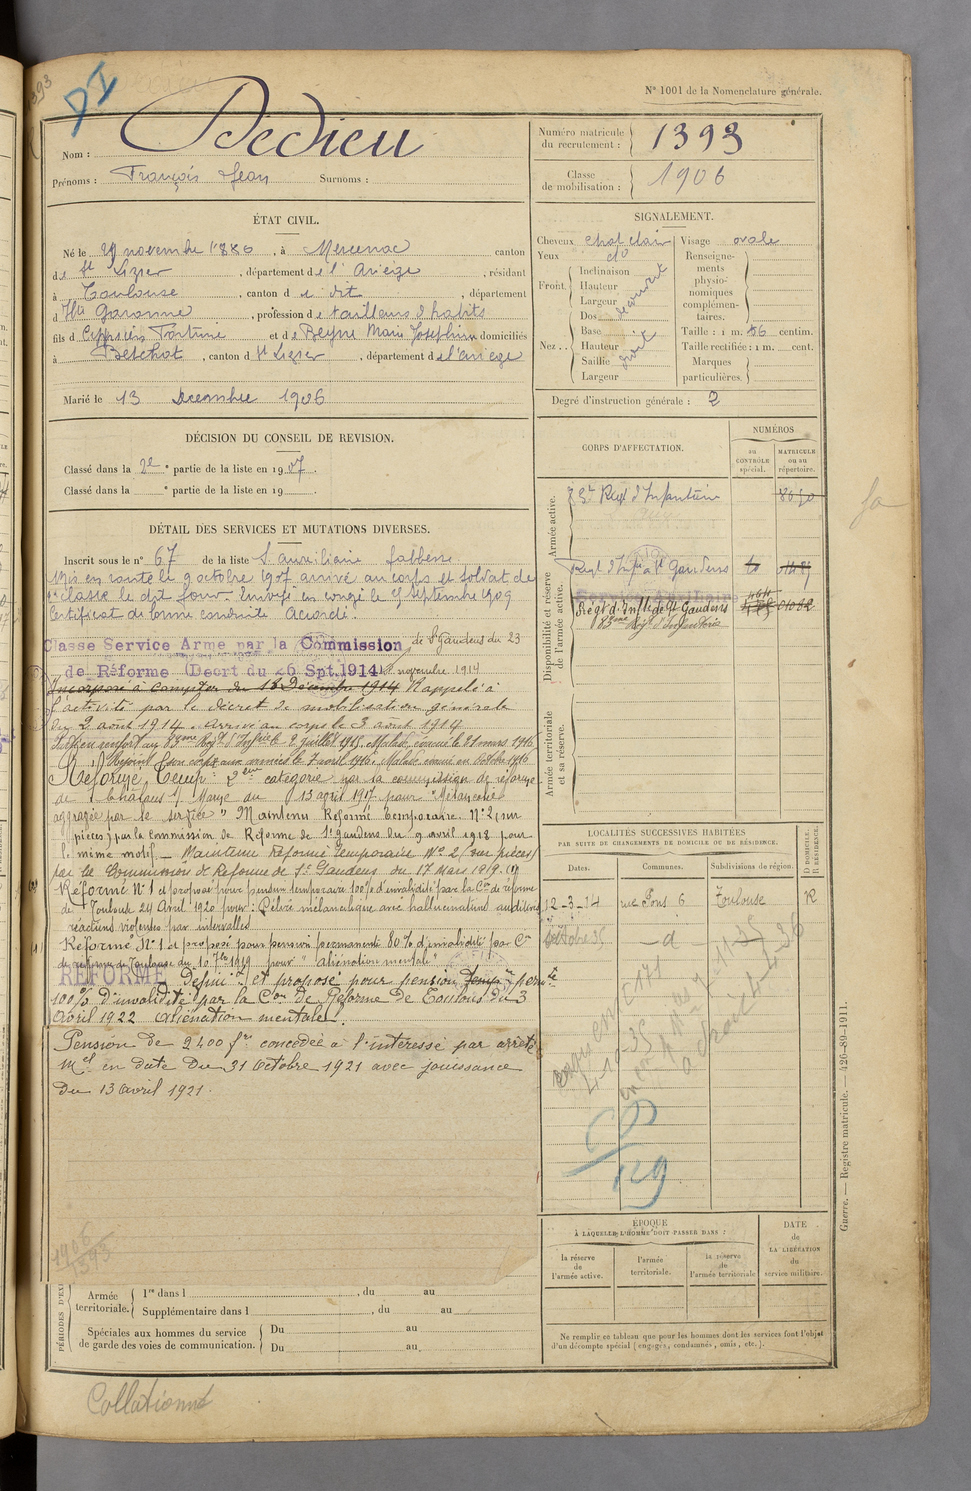 393
DI
N° 1001 de la Nomenclature générale.
Nom : Dedieu
Prénoms : François Jean Surnoms :
Numéro matricule du recrutement : 1393
Classe de mobilisation : 1906
ÉTAT CIVIL.
Né le 29 novembre 1886, à Mercenac canton
de St Lizier, département de l'Ariège, résidant
à Toulouse, canton d e dit, département
d Hte Garonne, profession de tailleurs d'habits
fils d Fortuné et de Beyne Marie Joséphine domiciliés
à Betchat, canton d St Lizier, département de l'ariège
Marié le 13 Décembre 1906
SIGNALEMENT.
Cheveux chat clair Visage ovale
Yeux do
Front. Inclinaison
Hauteur
Largeur
Nez. Dos
Base
Hauteur
Saillie
Largeur
découvert
droit
Renseignements physionomiques complémentaires.
Taille : 1 m. 86 centim.
Taille rectifiée : 1 m. cent.
Marques particulières.
Degré d'instruction générale : 2
DÉCISION DU CONSEIL DE REVISION.
Classé dans la 2e partie de la liste en 1907.
Classé dans la e partie de la liste en 19
DÉTAIL DES SERVICES ET MUTATIONS DIVERSES.
Inscrit sous le n° 67 de la liste S. auxiliaire faiblesse
Mis en route le 9 octobre 1907 arrivé au corps et soldat de
2e classe le dit jour. Envoyé en congé le septembre 1909
Certificat de bonne conduite Accordé.
Classe Service Arme par la Commission de St Gaudens du 23
de Réforme (Decrt du 26 Spt. 1914) novembre 1914
Incorporé à compter du 18 Décembre 1914 Rappelé à
l'activité par le décret de mobilisation générale
du 2 août 1914. Arrivé au corps le 3 août 1914
Passé en renfort au 83ème Régt d'Infrie le 2 juillet 1915. Malade, évacué le 21 mars 1916
Rejoint son corps aux armées le 7 avril 1916. Malade évacué en octobre 1916
Réformé Temp: 2ème catégorie par la commission de réforme
de Châlons s/ Marne du 13 avril 1917 pour "Mélancolie
aggravée par le service" Maintenu Réformé Temporaire N°2 (sur
pièces) par la Commission de Réforme de St gaudens du 9 avril 1918 pour
le même motif. Maintenu Réformé temporaire N° 2 (sur pièces)
par la Commission de Réforme de St Gaudens du 17 mars 1919.
Réformé N°1 et proposé pour pension temporaire 100% d'invalidité par la Con de réforme
de Toulouse 24 Avril 1920 pour : Délire mélancolique avec hallucinations auditives
réactions violentes par intervalles
Réformé N°1 et proposé pour pension permanente 80% d'invalidité par Con
de réforme de Toulouse du 10 7bre 1919 pour "aliénation mentale"
REFORME Définitif et proposé pour pension Temp perm te
100% d'invalidité par la Con de Réforme de Toulouse du 3
Avril 1922 aliénation mentale.
Pension de 2400 frs concédée à l'intéressé par arrêté
Mel en date du 31 octobre 1921 avec jouissance
du 13 avril 1921.
CORPS D'AFFECTATION.
NUMÉROS
au CONTRÔLE spécial.
MATRICULE ou au répertoire.
Armée active.
Régt d'Infanterie
Disponibilité et réserve de l'armée active.
Regt d'Infie à St Gaudens
Service Auxiliaire
Régt d'Infie de St Gaudens 01062
83ème Régt d'Infanterie
Armée territoriale et sa réserve.
fa
LOCALITÉS SUCCESSIVES HABITÉES
PAR SUITE DE CHANGEMENTS DE DOMICILE OU DE RÉSIDENCE.
Dates. Communes. Subdivisions de région. D DOMICILE. R RÉSIDENCE.
12-3-14 rue Pons 6 Toulouse R
octobre 35 — d —
129
ÉPOQUE
À LAQUELLE L'HOMME DOIT PASSER DANS :
la réserve de l'armée active.
l'armée territoriale.
la réserve de l'armée territoriale
DATE de LA LIBÉRATION du service militaire.
Ne remplir ce tableau que pour les hommes dont les services font l'objet
d'un décompte spécial (engagés, condamnés, omis, etc.).
1906
1393
PÉRIODES D'EX
Armée territoriale. 1re dans l , du au
Supplémentaire dans l , du au
Spéciales aux hommes du service de garde des voies de communication. Du au
Du au
Guerre. — Registre matricule. — 426-89-1911.
Collationné